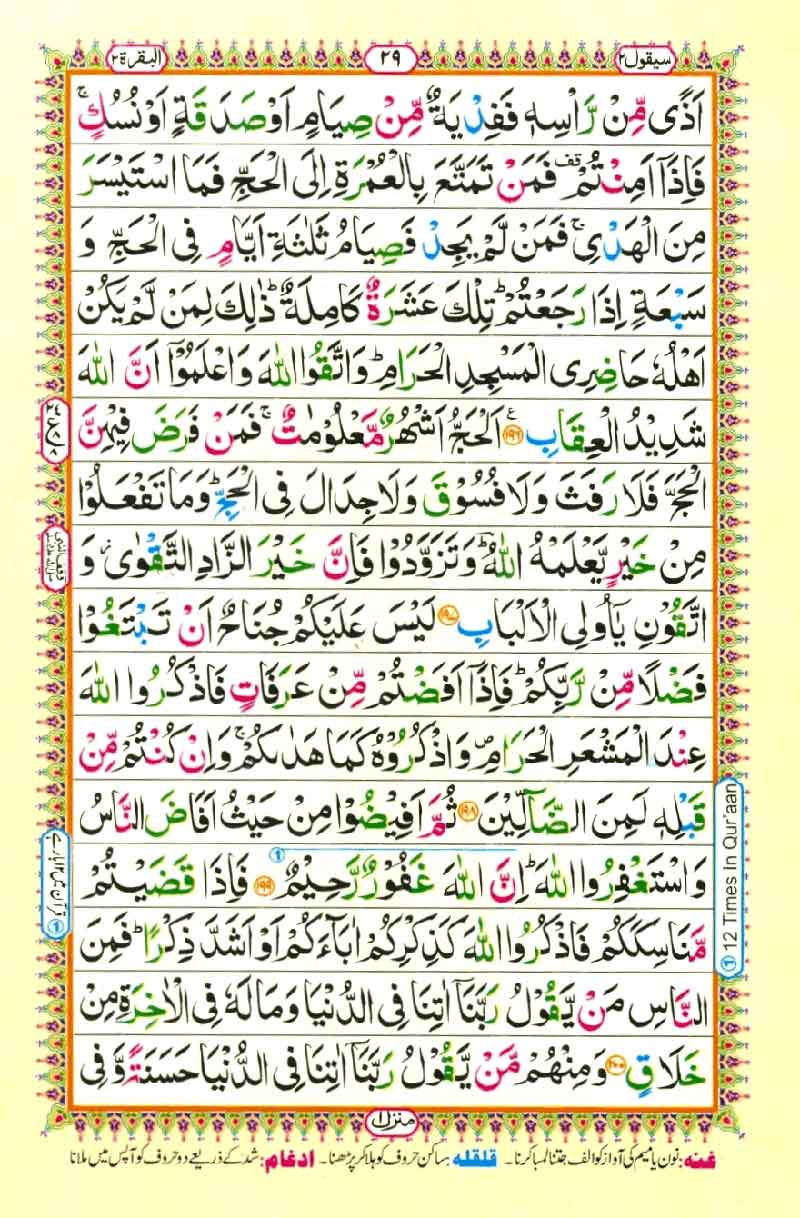 سيقول ٢
٢٩
البقرة ٢
اَذًى مِّنْ رَّاْسِهٖ فَفِدْيَةٌ مِّنْ صِيَامٍ اَوْ صَدَقَةٍ اَوْ نُسُكٍ ۚ
فَاِذَاۤ اَمِنْتُمْ ۥ فَمَنْ تَمَتَّعَ بِالْعُمْرَةِ اِلَى الْحَجِّ فَمَا اسْتَيْسَرَ
مِنَ الْهَدْيِ ۚ فَمَنْ لَّمْ يَجِدْ فَصِيَامُ ثَلٰثَةِ اَيَّامٍ فِى الْحَجِّ وَ
سَبْعَةٍ اِذَا رَجَعْتُمْ ؕ تِلْكَ عَشَرَةٌ كَامِلَةٌ ؕ ذٰلِكَ لِمَنْ لَّمْ يَكُنْ
اَهْلُهٗ حَاضِرِى الْمَسْجِدِ الْحَرَامِ ؕ وَاتَّقُوا اللّٰهَ وَاعْلَمُوْۤا اَنَّ اللّٰهَ
شَدِيْدُ الْعِقَابِ ۧ ﴿١٩٦﴾ اَلْحَجُّ اَشْهُرٌ مَّعْلُوْمٰتٌ ۚ فَمَنْ فَرَضَ فِيْهِنَّ
الْحَجَّ فَلَا رَفَثَ وَلَا فُسُوْقَ وَلَا جِدَالَ فِى الْحَجِّ ؕ وَمَا تَفْعَلُوْا
مِنْ خَيْرٍ يَّعْلَمْهُ اللّٰهُ ؔؕ وَتَزَوَّدُوْا فَاِنَّ خَيْرَ الزَّادِ التَّقْوٰى ؗ وَ
اتَّقُوْنِ يٰۤاُولِى الْاَلْبَابِ ﴿١٩٧﴾ لَيْسَ عَلَيْكُمْ جُنَاحٌ اَنْ تَبْتَغُوْا
فَضْلًا مِّنْ رَّبِّكُمْ ؕ فَاِذَاۤ اَفَضْتُمْ مِّنْ عَرَفَاتٍ فَاذْكُرُوا اللّٰهَ
عِنْدَ الْمَشْعَرِ الْحَرَامِ ۪ وَاذْكُرُوْهُ كَمَا هَدٰىكُمْ ۚ وَاِنْ كُنْتُمْ مِّنْ
قَبْلِهٖ لَمِنَ الضَّآلِّيْنَ ﴿١٩٨﴾ ثُمَّ اَفِيْضُوْا مِنْ حَيْثُ اَفَاضَ النَّاسُ
وَاسْتَغْفِرُوا اللّٰهَ ؕ اِنَّ اللّٰهَ غَفُوْرٌ رَّحِيْمٌ ﴿١٩٩﴾ فَاِذَا قَضَيْتُمْ
مَّنَاسِكَكُمْ فَاذْكُرُوا اللّٰهَ كَذِكْرِكُمْ اٰبَآءَكُمْ اَوْ اَشَدَّ ذِكْرًا ؕ فَمِنَ
النَّاسِ مَنْ يَّقُوْلُ رَبَّنَاۤ اٰتِنَا فِى الدُّنْيَا وَمَا لَهٗ فِى الْاٰخِرَةِ مِنْ
خَلَاقٍ ﴿٢٠٠﴾ وَمِنْهُمْ مَّنْ يَّقُوْلُ رَبَّنَاۤ اٰتِنَا فِى الدُّنْيَا حَسَنَةً وَّفِى
① 12 Times In Qur'aan
منزل ١
غنه: نون یا میم کی آواز کو الف جتنا لمبا کرنا۔ قلقله: ساکن حروف کو ہلا کر پڑھنا۔ ادغام: شد کے ذریعے دو حروف کو آپس میں ملانا